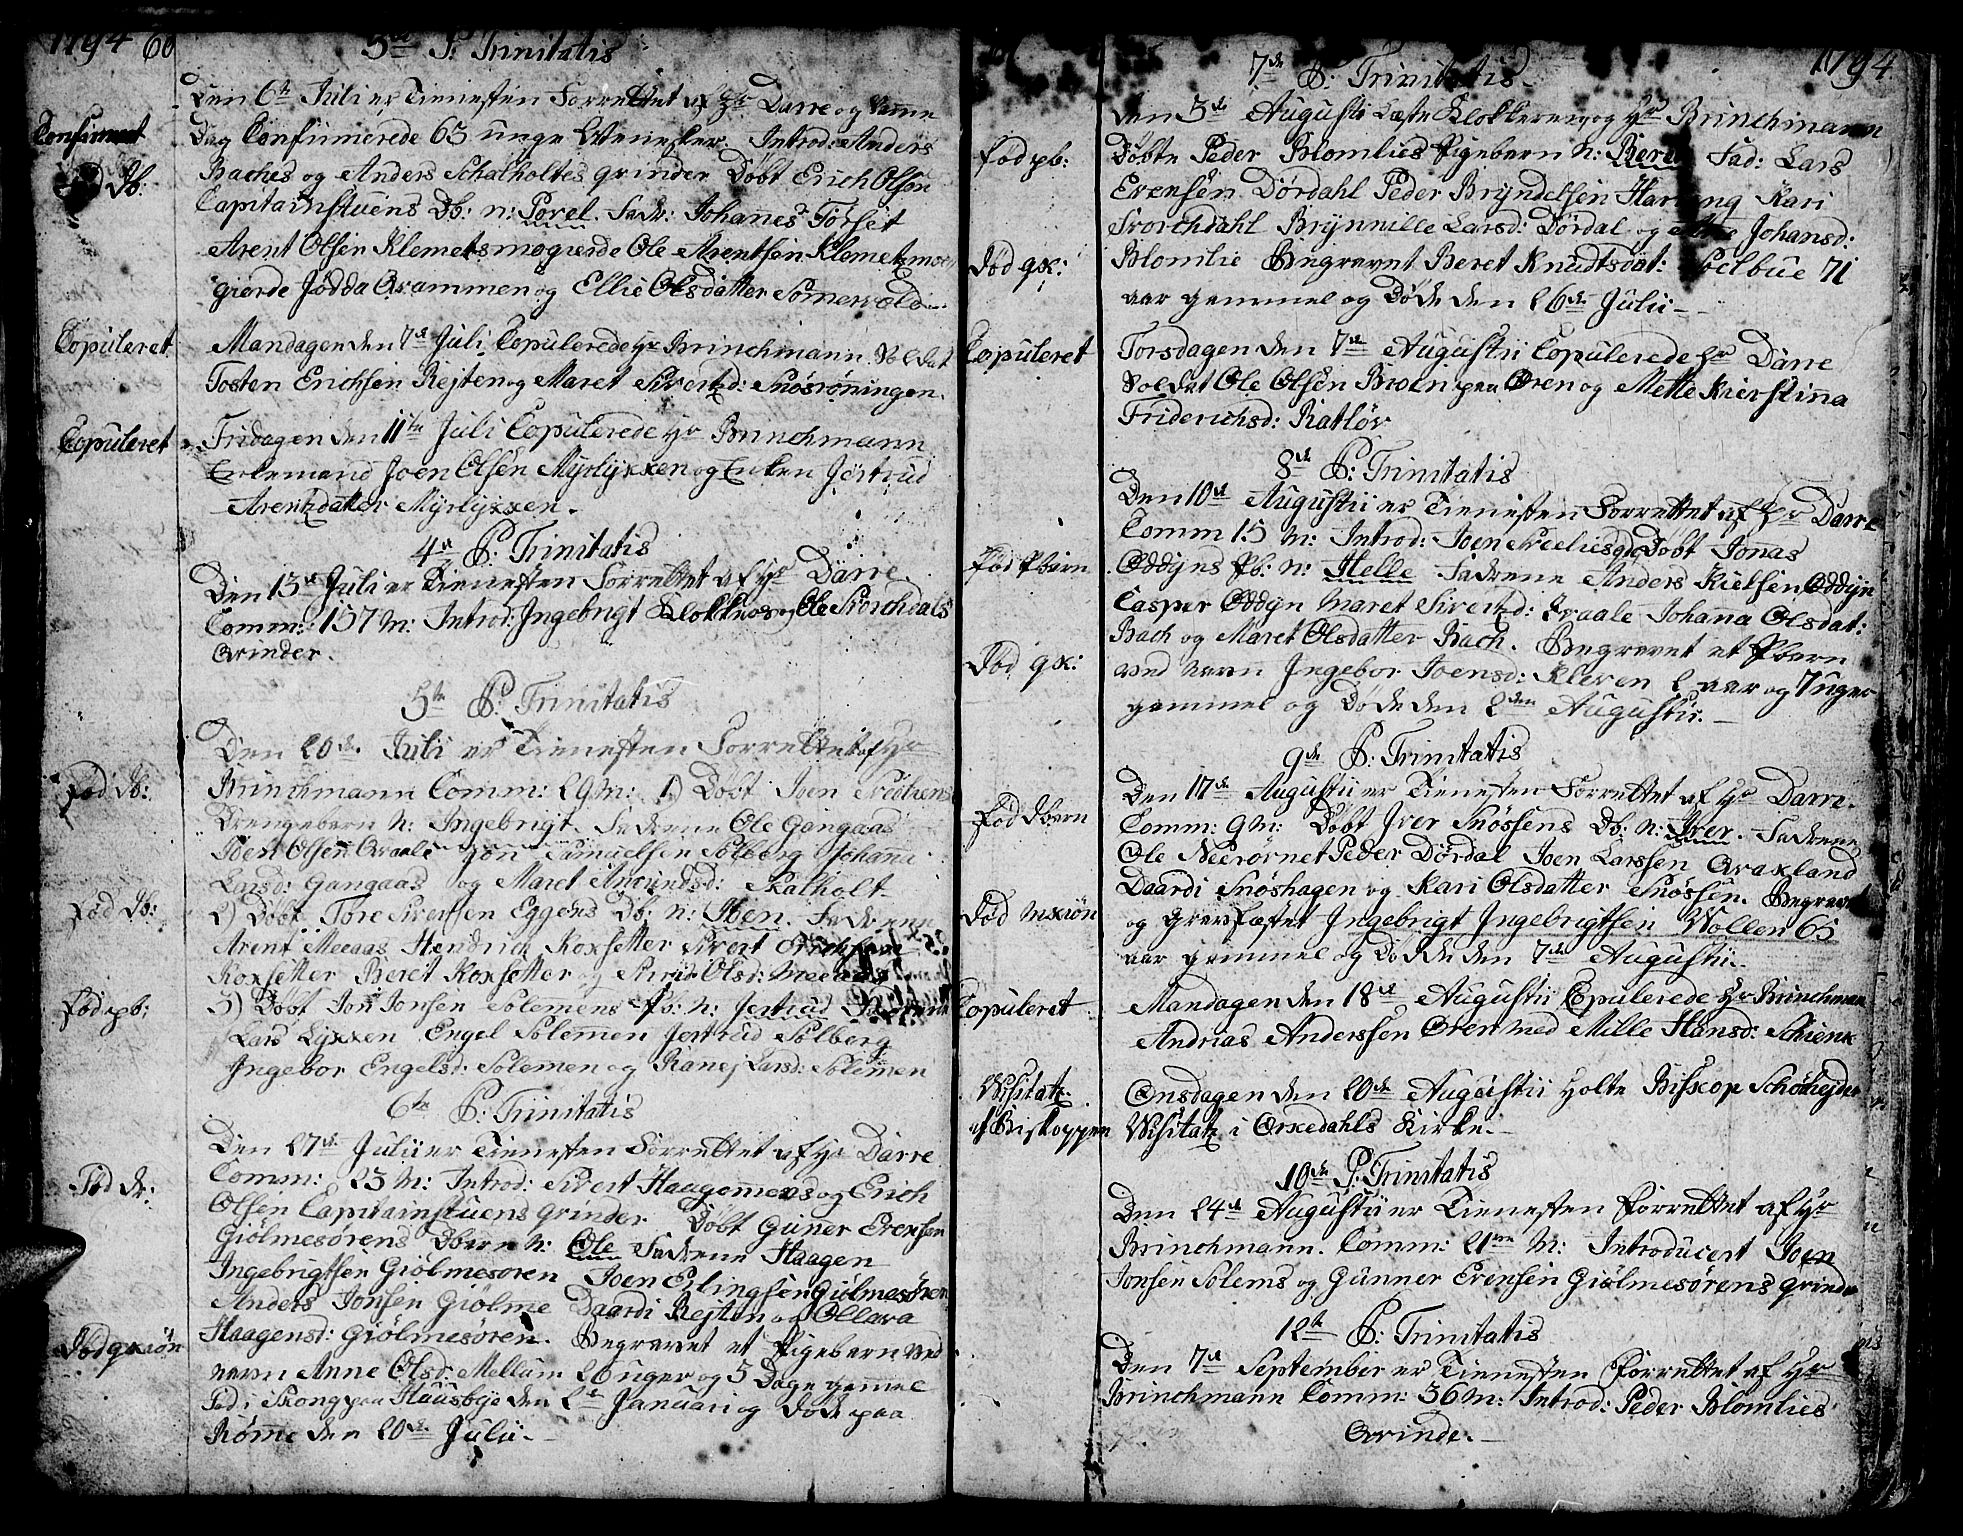 1794 60
3de P: Trinitatis
Den 6te Juli er Tienesten Forrettet af Hr Darre og samme
Confirmeret
Dag Confirmerede 63 unge Mennesker. Introd: Anders
Baches og Anders Schalholtes qvinder Døbt Erich Olsen
Db:
Capitainstuens Db: n: Porel. Fadr: Johannes Forset
Arent Olsen Klemetsmogierde Ole Arentsen Klemetzmoe
gierde Jødda Qrammen og Ellie Olsdatter Somervold.
Copuleret
Mandagen den 7de Juli Copulerede Hr Brinchmann Soldat
Tosten Erichsen Rejten og Maret Sivertzd: Snøsrøningen.
Copuleret
Fridagen den 11te Juli Copulerede Hr Brinchmann
Enkemand Joen Olsen Myrlyxxen og Enken Jertrud
Arentzdatter Myrlyxxen.
4de P: Trinitatis
Den 13de Juli er Tienesten Forrettet af Hr Darre
Comm: 157 M: Introd: Ingebrigt Klokkuos og Ole Storchdals
Qvinder.
5te P: Trinitatis
Den 20de Juli er Tienesten Forrettet af Hr
Fød Db:
Brinchmann Comm: 29 M: 1) Døbt Joen
Drengebarn N: Ingebrigt. Fadrene Ole Gangaas
Joen Olsen Qraale Jon Samuelsen Solberg Johanna
Larsd: Gangaas og Maret Amundsd: Skalholt
Fød Db:
2) Døbt Tore Sivertsen Eggens Db: n: Iben. Fadrene
Arent Meeaas Hendrich Roxsetter Sivert Erichsen
Roxsetter Beret Roxsetter og Siri Olsd: Meeaas
Fød pb:
3) Døbt Jon Jonsen Solemens Pb: n: Jertrud
Lars Lyxxen Engel Solemen Jertrud Solberg
Ingebor Engelsd: Solemen og Ranej Larsd: Solemen
6te P: Trinitatis
Den 27de Julii er Tienesten Forrettet af Hr Darre
Fød dr:
Comm: 23 M: Introd: Sivert Haagenmoens og Erich
Olsen Capitainstuens qvinder Døbt Guner Evensen
Giølmesørens Dbarn N: Ole Fadrene Haagen
Ingebrigtsen Giølmesøren Joen Erlingsen Giølmesøren
Anders Jonsen Giølme Daardi Rejten og Ollava
Haagensd: Giølmesøren. Begravet et Pigebarn ved
Død qxiøn
navn Anne Olsd: Mellum 26 uger og 5 Dage gamel
Fød i Skongpaa Huusbye den 2de Januari og døde paa
Rømme den 20de Julii.
1794
7de P: Trinitatis
Den 3de Augusti Læste Klokkeren og Hr Brinchmann
Fød pb:
Døbte Peder Blomlies Pigebarn n: Beret Fad: Lars
Evensen Dørdahl Peder Bryndelsen Hartung Kari
Storchdahl Brynnille Larsd: Dørdal og Johansd:
Død qx:
Blomlie Begravet Beret Knudtsdat: Soelbue 71
aar gammel og Døde den 26de Julii
Copuleret
Torsdagen den 7de Augustii Copulerede Hr Darre
Soldat Ole Olsen Broen paa Øren og Mette Kierstina
Friderichsd: Ratløv
8de P: Trinitatis
Den 10de Augustii er Tienesten Forrettet af Hr Darre
Comm 15 M: Introd: Joen Døbt Jonas
Fød Pbarn
Oddyns Pb: n: Helle Fadrene Anders Kielsen Oddyn
Casper Oddyn Maret Sivertzd: Qraale Johana Olsdat:
Bach og Maret Olsdatter Bach. Begravet et Pbarn
Død qx:
ved navn Ingebor Joensd: Kleven 2 aar og 7 uger
gammel og Døde den 2den Augustii.
9de P: Trinitatis
Den 17de Augustii er Tienesten Forrettet af Hr Darre.
Fød Dbarn
Comm: 9 M: Døbt Iver Snøssens Db: n: Iver. Fadrene
Ole Neerørnet Peder Dørdal Joen Larssen Qraxland
Daardi Snøshagen og Kari Olsdatter Snøssen. Begravet
Død Mxiøn
og gravfæstet Ingebrigt Ingebrigtsen Wollen 65
aar gammel og Døde den 7de Augustii.
Copuleret
Mandagen den 18de Augustii Copulerede Hr Brinchman
Andrias Anderssen Øren med Mille Hansd: Schienk
Visitatz
af Biskoppen
Onsdagen den 20de Augustii Holte Bisskop Schønhejder
Visitatz i Orkedahls Kirke.
10de P: Trinitatis
Den 24de Augustii er Tienesten Forrettet af Hr
Brinchmann. Comm: 21 M: Introducert Joen
Jonsen Solems og Gunner Evensen Giølmesørens qvinder
12te P: Trinitatis
Den 7de September er Tienesten Forrettet af Hr
Brinchmann Comm: 36 M: Introd: Peder Blomlies
Qvinde.